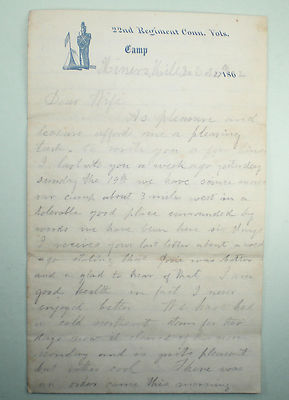 22nd Regiment Conn. Vols.
Camp
Miners Hill 186
Dear Wife
As pleasure and
leasure afford me a pleasing
task to write you a few lines
I last wrote you a week ago yesterday
sunday the 19th we have since moved
our camp about 3 miles west in a
tolerable good place surrounded by
woods we have been here six days
I received your last letter about a week
ago stating that was better
and a glad to hear of that I am
good health in fact I never
enjoyed better We have had
a cold northeast storm for two
days now it cleared off
monday and is quite pleasant
but rather cool There was
an order came this morning